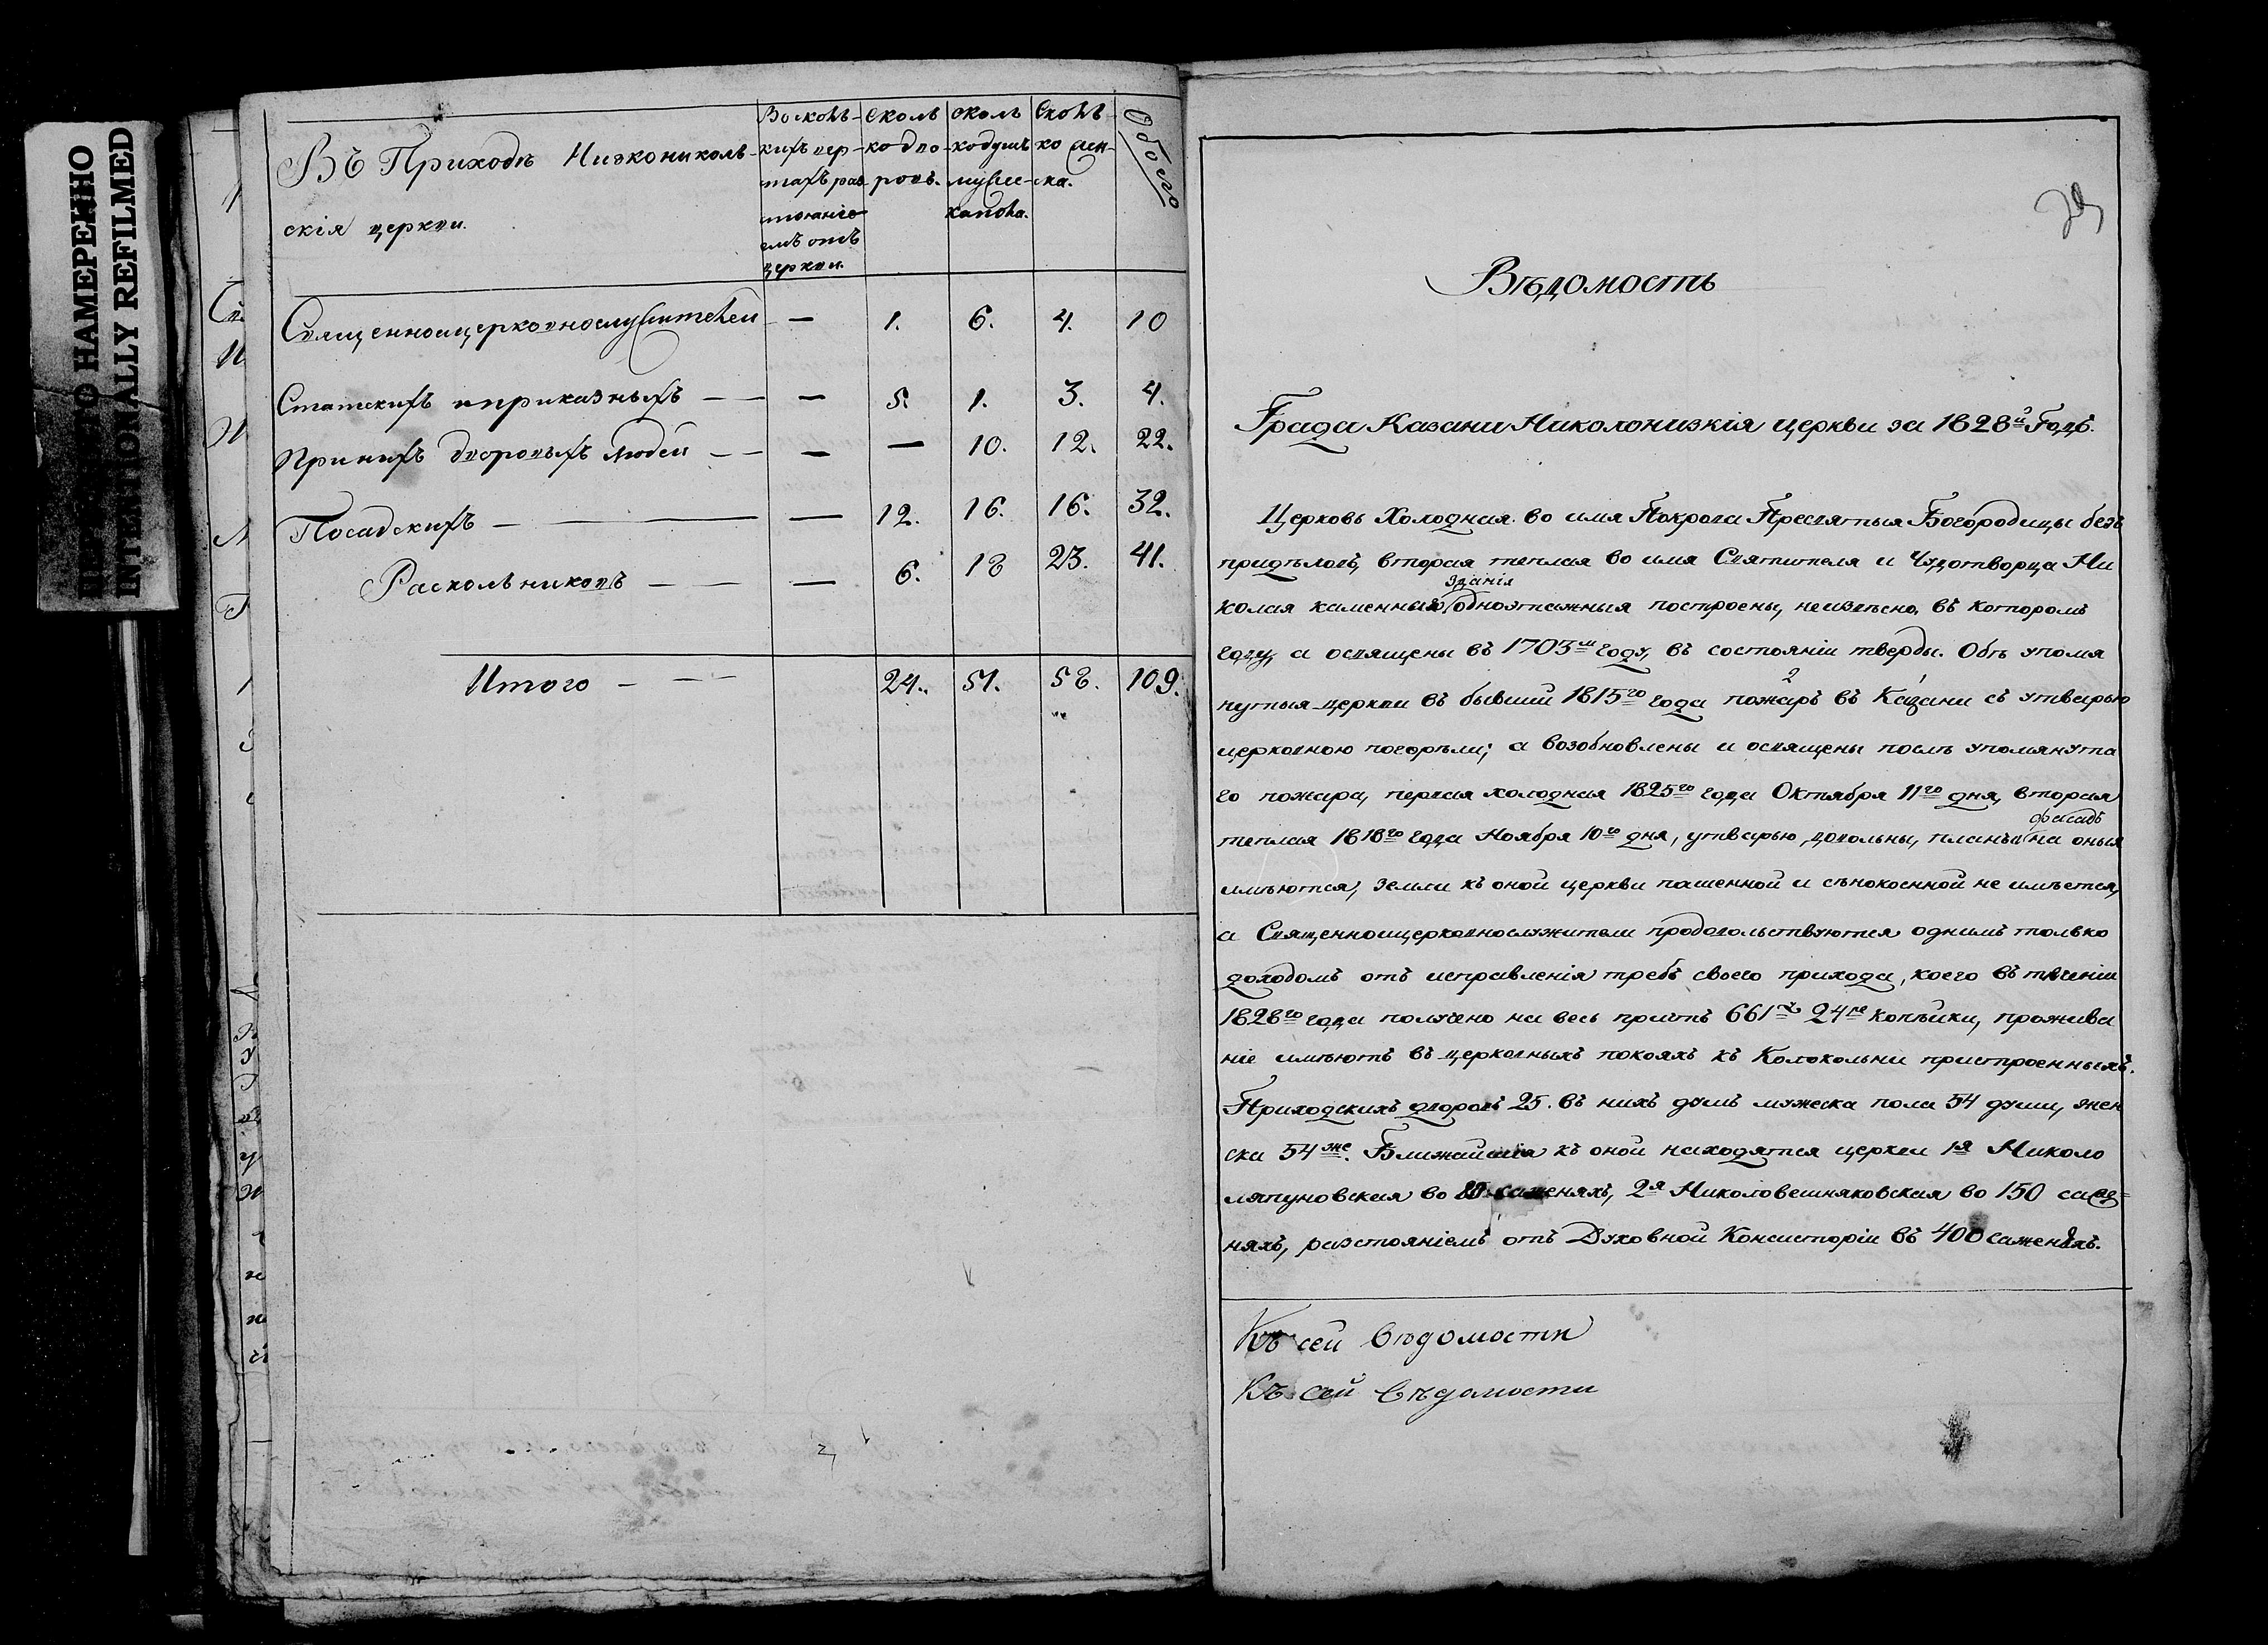 ПОВТОРНО НАМЕРЕННО
INTENTIONALLY REFILMED
Въ Приходѣ Низконикольскія церкви.
Восколькихъ верстахъ разстояніемъ отъ церкви.
Сколько дворовъ.
Сколько душъ мужеска пола.
Сколько женска.
Обоего
Священноицерковнослужителей — 1. 6. 4. 10
Статскихъ иприказныхъ — — — 5. 1. 3. 4.
Принихъ дворовыхъ людей — — — — 10. 12. 22.
Посадскихъ — — — 12. 16. 16. 32.
Раскольниковъ — — — 6. 18 23. 41.
Итого — — — 24. 51. 58. 109.
39
Вѣдомость
Града Казани Николонизкія церкви за 1828й Годъ.
Церковь Холодная во имя Покрова Пресвятыя Богородицы безъ
придѣловъ, вторая теплая во имя Святителя и Чудотворца Ни
зданія
колая каменныя одноэтажныя построены, неизвѣсно, въ которомъ
году, а освящены въ 1703м году, въ состояніи тверды. Обѣ упомя
нутыя церкви въ бывшій 1815го года пожаръ въ Казани съ утварью
церковною погорѣли; а возобновлены и освящены послѣ упомянута
го пожара, первая холодная 1825го года Октября 11го дня, вторая
фасадъ
теплая 1818го года Ноября 10го дня, утварью довольны, планъ и на оныя
имѣются, земли къ оной церкви пашенной и сѣнокосной не имѣется,
а Священноицерковнослужители продовольствуются однимъ только
доходомъ отъ исправленія требъ своего прихода, коего въ теченіи
1828го года получено на весь причтъ 661 24 копѣики, прожива
ніе имѣютъ въ церковныхъ покояхъ къ Колокольни пристроенныхъ.
Приходскихъ дворовъ 25. въ нихъ душъ мужеска пола 54 души, жен
ска 54же. Ближайшія къ оной находятся церкви 1я Николо
ляпуновская во саженяхъ, 2я Николовешняковская во 150 саже=
няхъ, разстояніемъ отъ Духовной Консисторіи въ 400 саженяхъ.
Къ сей вѣдомости
Къ сей вѣдомости